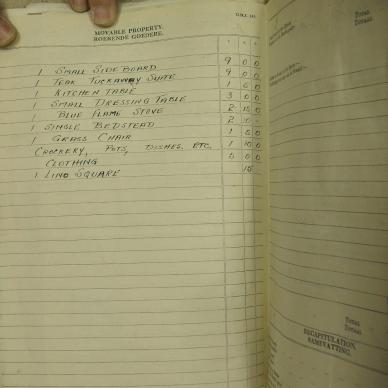 D.N.E. 111.
MOVABLE PROPERTY.
ROERENDE GOEDERE.
1 SMALL SIDEBOARD 9 0 0
1 TEAK TUCKAWAY SUITE 9 0 0
1 KITCHEN TABLE 1 0
1 SMALL DRESSING TABLE 3 0 0
1 BLUE FLAME STOVE 2 10 0
1 SINGLE BEDSTEAD 2 10 -
1 GRASS CHAIR 1 0
CROCKERY, POTS, DISHES, ETC. 1 10 0
CLOTHING 5 0 0
1 LINO SQUARE 15
TOTAL
TOTAAL
TOTAL
TOTAAL
RECAPITULATION.
SAMEVATTING.